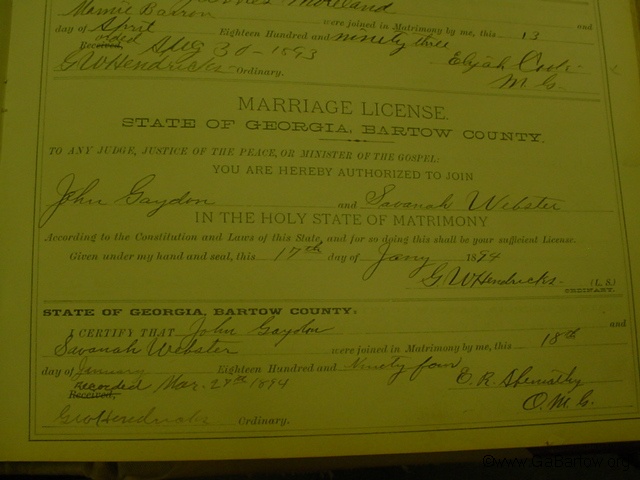 Mamie Barron were joined in Matrimony by me, this 13 and
day of April Eighteen Hundred and ninety three
Received, orded Aug 30 - 1893 Elijah
G W Hendricks Ordinary. M. G.
MARRIAGE LICENSE.
STATE OF GEORGIA, BARTOW COUNTY.
TO ANY JUDGE, JUSTICE OF THE PEACE, OR MINISTER OF THE GOSPEL:
YOU ARE HEREBY AUTHORIZED TO JOIN
John Gaydon and Savanah Webster
IN THE HOLY STATE OF MATRIMONY
According to the Constitution and Laws of this State, and for so doing this shall be your sufficient License.
Given under my hand and seal, this 17th day of Jany 1894
G W Hendricks. (L. S.)
ORDINARY.
STATE OF GEORGIA, BARTOW COUNTY.
I CERTIFY THAT John Gaydon and
Savanah Webster were joined in Matrimony by me, this 18th
day of January Eighteen Hundred and Ninety four
Recorded Mar. 27th 1894 E. R. Abernathy
Received, O. M. G.
G W Hendricks Ordinary.
©www.GaBartow.org